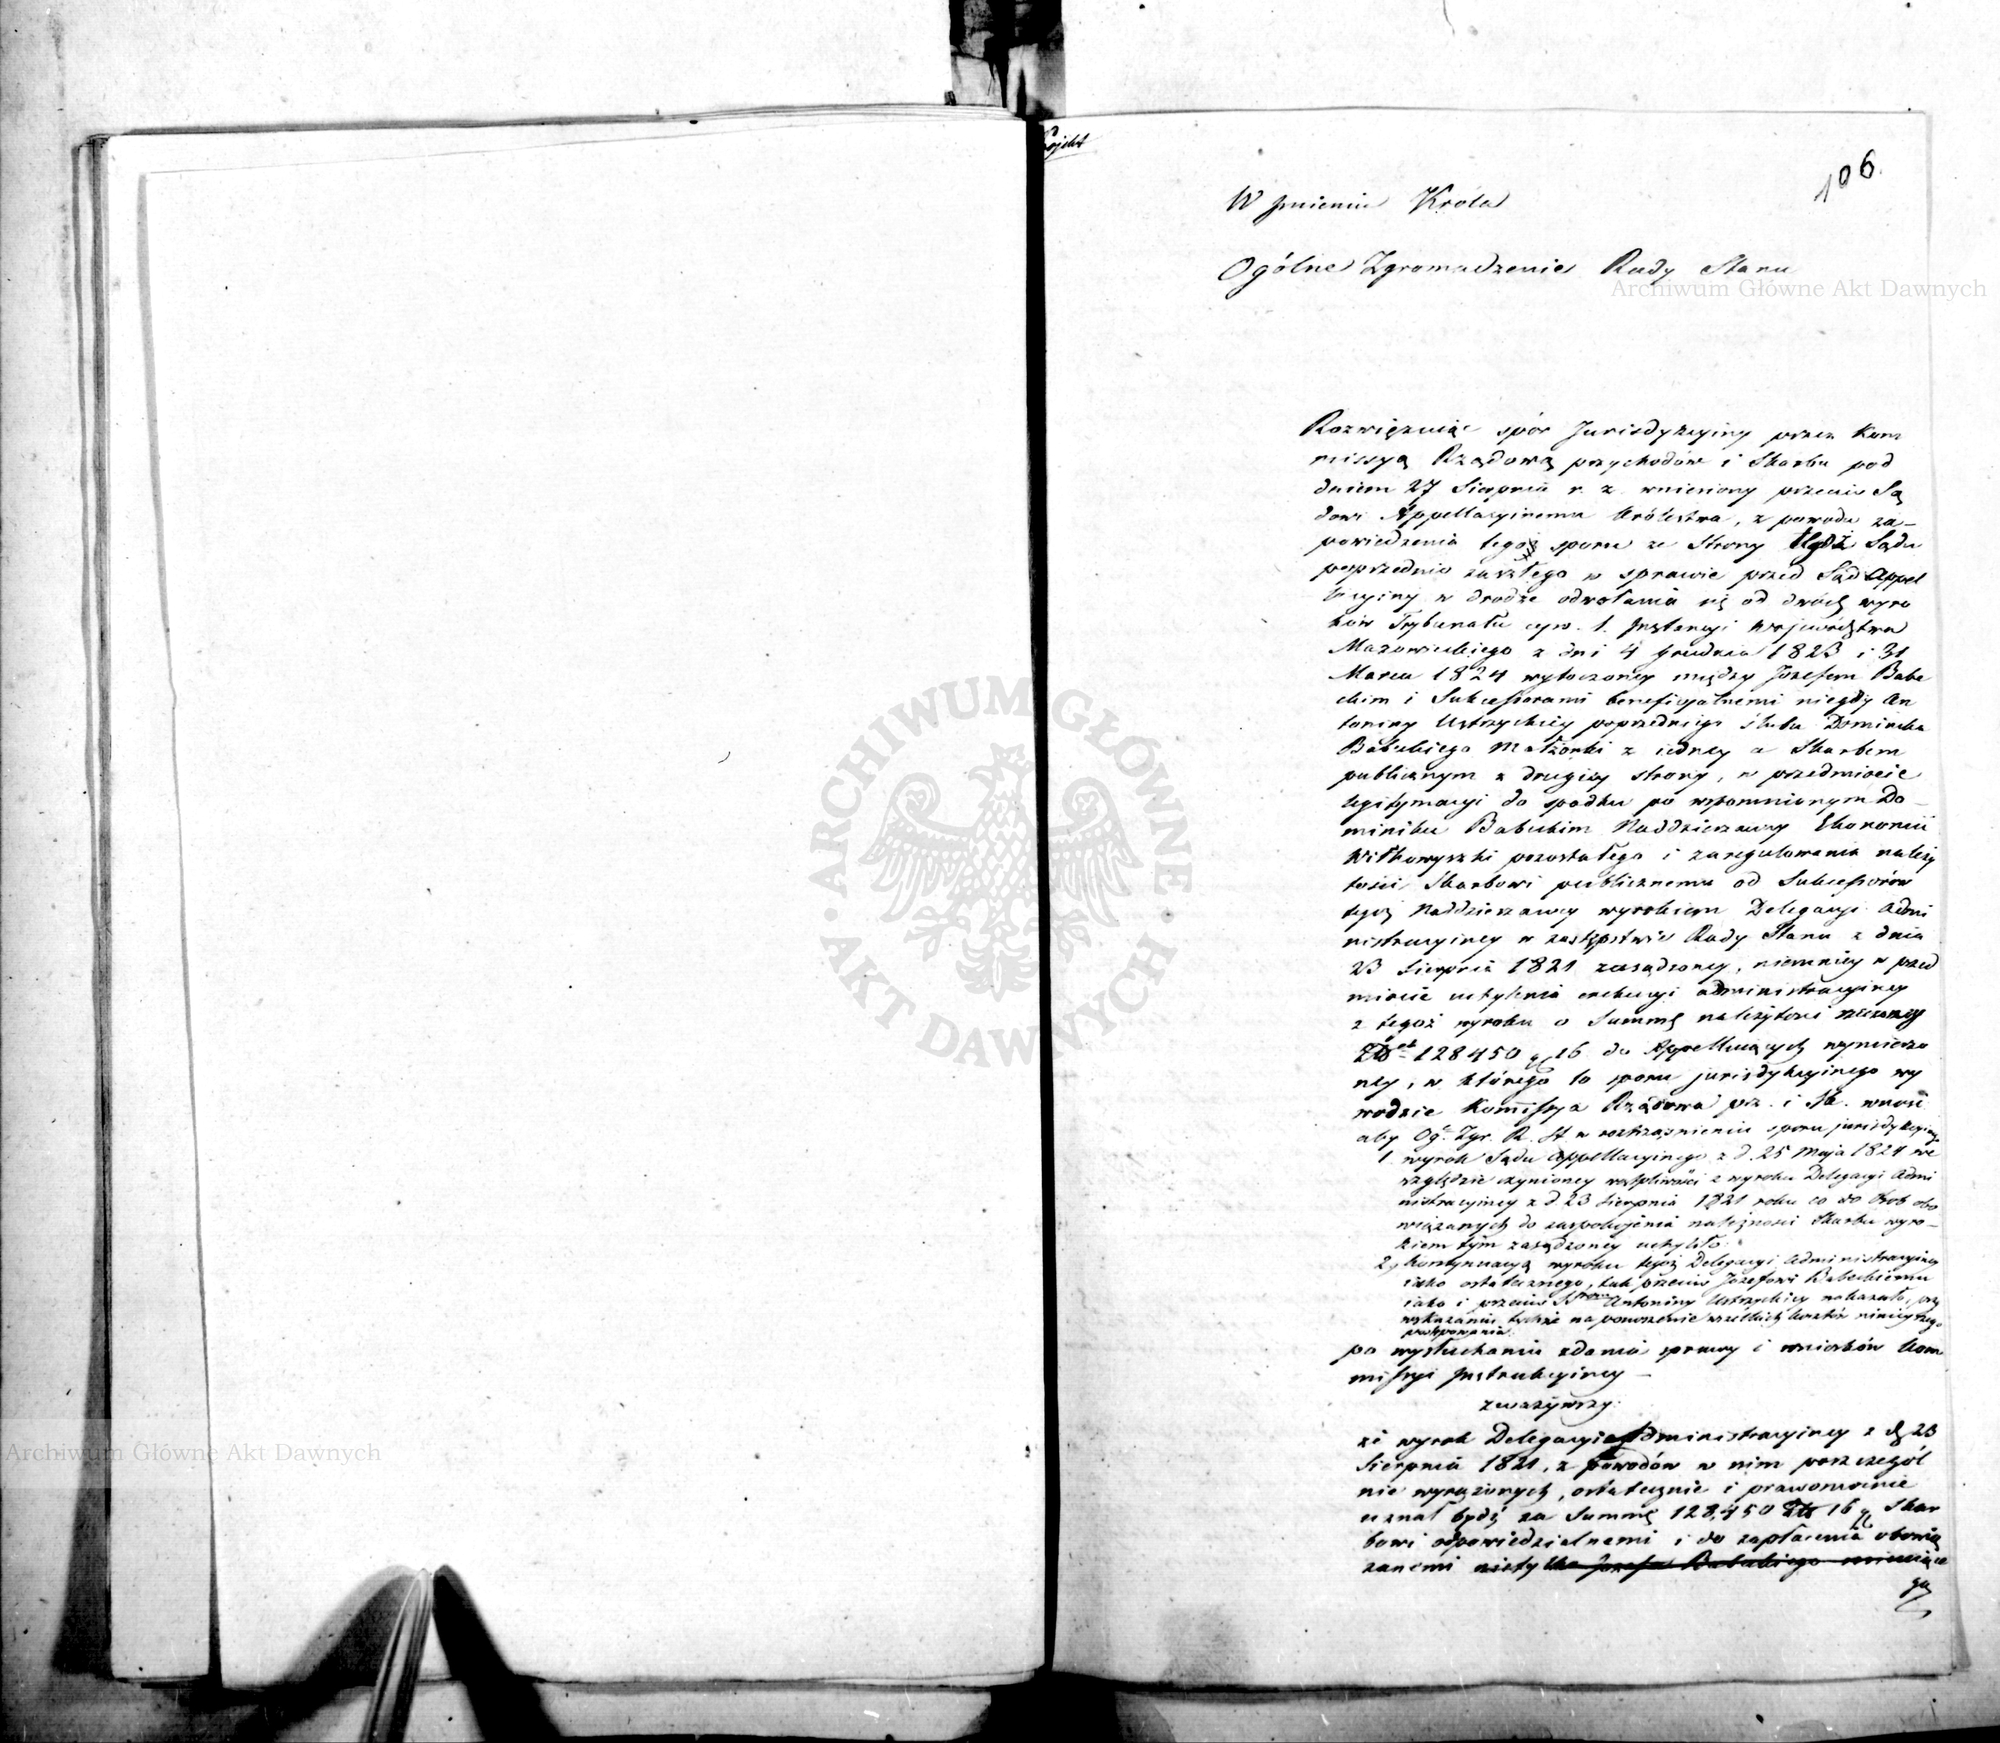 Projekt
106.
W Jmieniu Króla
Ogólne Zgromadzenie Rady Stanu
Archiwum Główne Akt Dawnych
Rozwiązuiąc spór Jurisdykcyiny przez Kom
missyą Rządową przychodów i Skarbu pod
dniem 27 Sierpnia r. z. wniesiony przeciw Są
dowi Appellacyinemu Królestwa, z powodu za-
powiedzenia tegoż sporu ze Strony tegoż Sądu
poprzednio zaszłego w sprawie przed Sąd Appel
lacyiny w drodze odwołania się od dwóch wyro
ków Trybunału cyw. 1. Jnstancyi Województwa
Mazowieckiego z dni 4 Grudnia 1823 i 31
Marca 1824 wytoczoney między Józefem Babe
ckim i Sukcessorami beneficyalnemi niegdy An
toniny Ustrzyckiey poprzedniego ślubu Dominika
Babeckiego Małżonki z iedney a Skarbem
publicznym z drugiey strony, w przedmiocie
legitymacyi do spadku po wspomnionym Do-
miniku Babeckim Naddzierzawcy Ekonomii
Wiłkowyszki pozostałego i zaregulowania należy
tości Skarbowi publicznemu od Sukcessorów
tegoż Naddzierzawcy wyrokiem Delegacyi Admi
nistracyiney w zastępstwie Rady Stanu z dnia
23 Sierpnia 1821 zasądzoney, niemniey w przed
miocie uchylenia exekucyi administracyiney
z tegoż wyroku o Summę należytości rzeczoney
128450 16 do Appelluiących wymierzo
ney, w którego to sporu jurisdykcyinego wy
wodzie Kommissya Rządowa prz. i Sk. wnosi
aby Og. Zgr. R. St. w rozstrząśnieniu sporu jurisdykcyinego
1. wyrok Sądu Appellacyinego z d. 25 Maja 1824 we
względzie czynioney wątpliwości z wyroku Delegacyi Admi
nistracyiney z d. 23 Sierpnia 1821 roku co do Osób obo
wiązanych do zaspokojenia należności Skarbu wyro-
kiem tym zasądzoney uchyliło.
2, kontynuacyą wyroku tegoż Delegacyi Administracyiney
iako ostatecznego, tak przeciw Józefowi Babeckiemu
iako i przeciw Antoniny Ustrzyckiey nakazało, przy
wskazaniu tychże na ponoszenie wszelkich kosztów ninieyszego
postępowania.
po wysłuchaniu zdania sprawy i wniosków Kom
missyi Jnstrukcyiney -
zważywszy:
że wyrok Delegacyi Administracyiney z d. 23
Sierpnia 1821, z powodów w nim poszczegól
nie wyrażonych, ostatecznie i prawomocnie
uznał bydź za Summę 128,450 16 Skar
bowi odpowiedzialnemi i do zapłacenia obowią
zanemi nietylko Józefa Babeckiego
Archiwum Główne Akt Dawnych
ARCHIWUM GŁÓWNE
AKT DAWNYCH